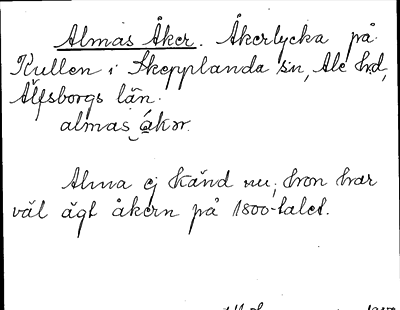 Almas Åker. Åkerlycka på
Kullen i Skepplanda sn, Ale hd,
Älfsborgs län.
almas åkər.
Alma ej känd nu; hon har
väl ägt åkern på 1800-talet.